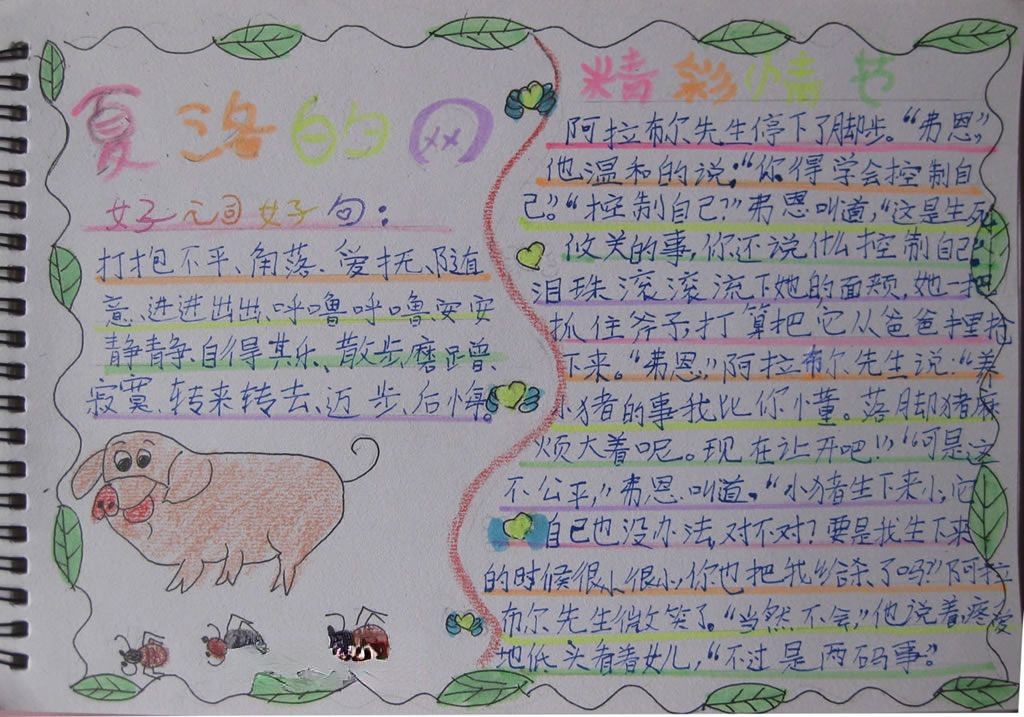 夏洛的网
好词好句：
打抱不平、角落、爱抚、随
意、进进出出、呼噜呼噜、安安
静静、自得其乐、散步、磨蹭、
寂寞、转来转去、迈步、后悔。
精彩情节
阿拉布尔先生停下了脚步。“弗恩，”
他温和的说：“你得学会控制自
己。”“控制自己？”弗恩叫道，“这是生死
攸关的事，你还说什么控制自己”
泪珠滚滚流下她的面颊，她一把
抓住斧子，打算把它从爸爸手里抢
下来。“弗恩，”阿拉布尔先生说：“养
小猪的事我比你懂。落脚猪麻
烦大着呢。现在让开吧！”“可是这
不公平，”弗恩叫道。“小猪生下来小，它
自己也没办法，对不对？要是我生下来
的时候很小很小，你也把我给杀了吗？”阿拉
布尔先生微笑了。“当然不会，”他说着，疼爱
地低头看着女儿，“不过是两码事。”